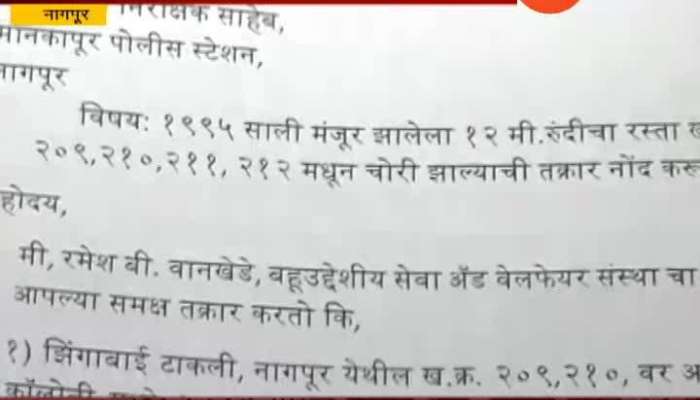 नागपूर
निरीक्षक साहेब,
मानकापूर पोलीस स्टेशन,
नागपूर
विषय: १९९५ साली मंजूर झालेला १२ मी.रुंदीचा रस्ता
२०९,२१०,२११, २१२ मधून चोरी झाल्याची तक्रार नोंद
होदय,
मी, रमेश बी. वानखेडे, बहूउद्देशीय सेवा अँड वेलफेयर संस्था चा
आपल्या समक्ष तक्रार करतो कि,
१) झिंगाबाई टाकली, नागपूर येथील ख.क्र. २०९,२१०, वर